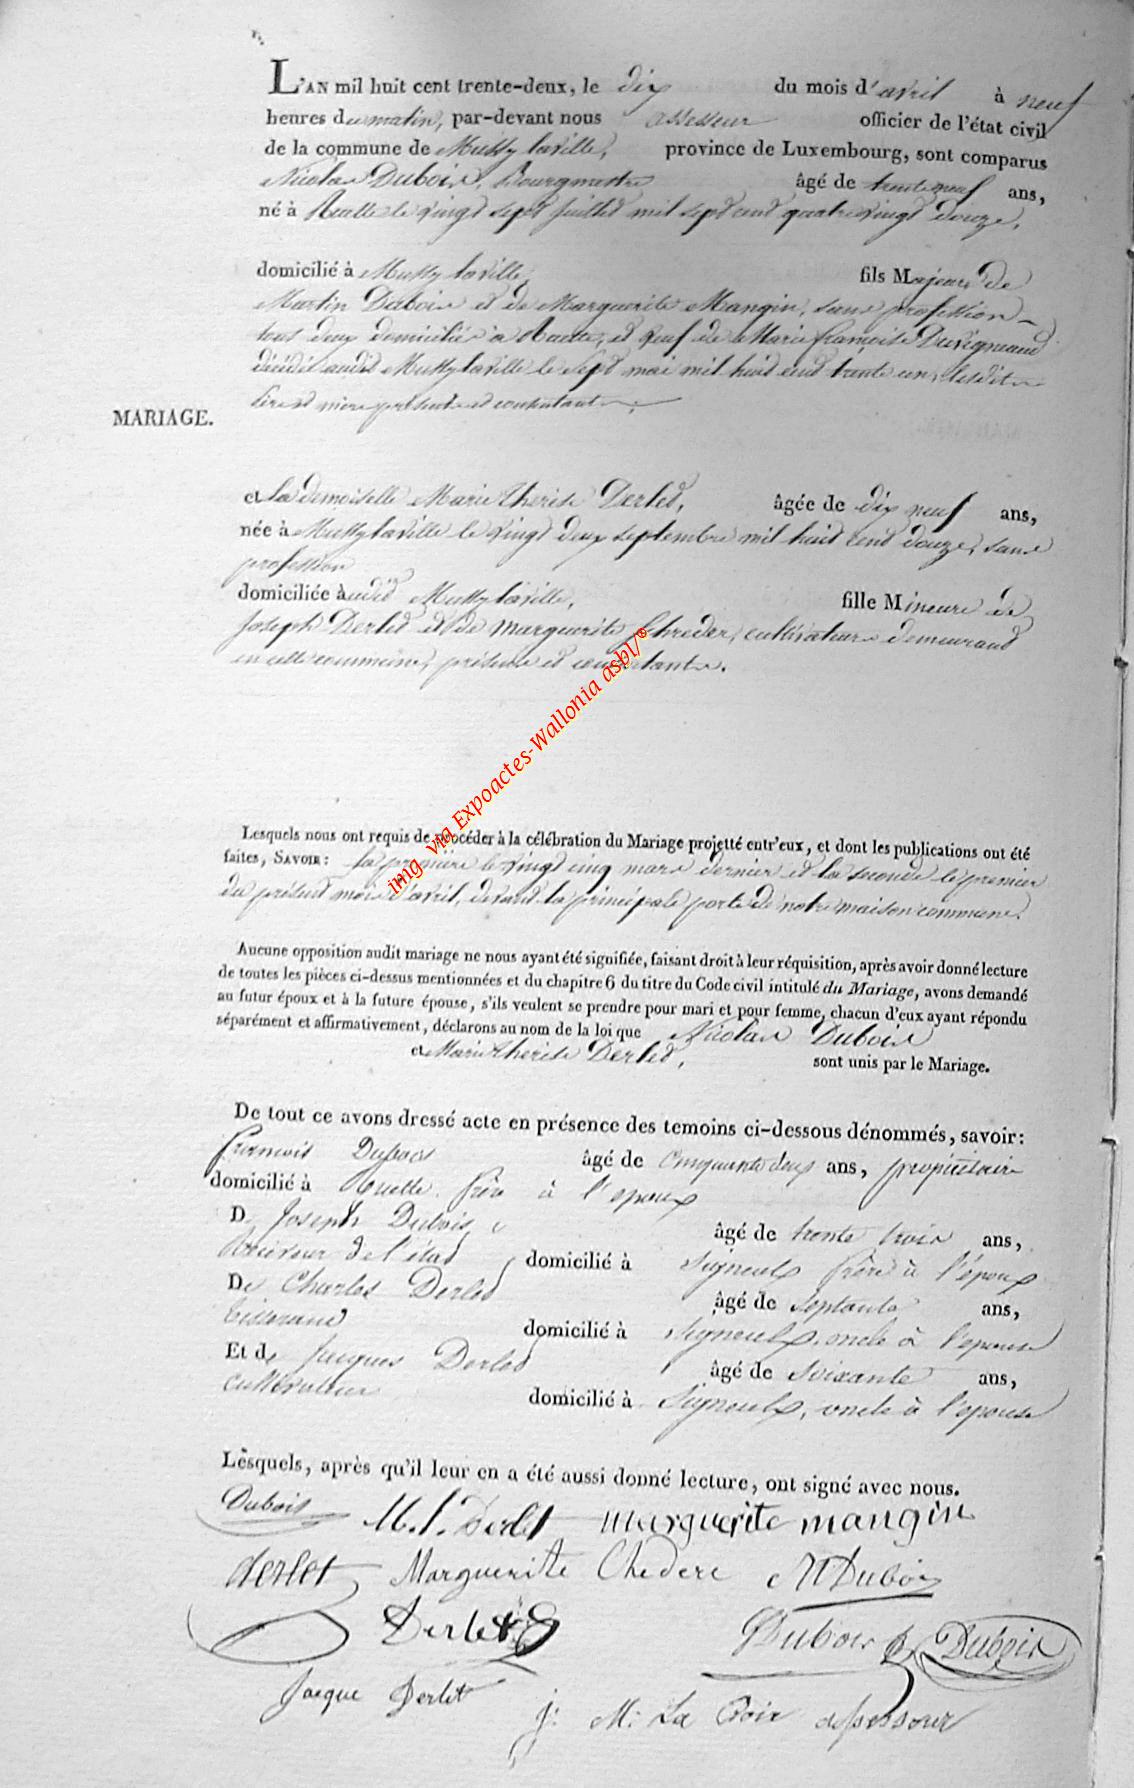 L'AN mil huit cent trente-deux, le dix du mois d'avril à neuf
heures du matin, par-devant nous assesseur officier de l'état civil
de la commune de Mussy laville, province de Luxembourg, sont comparus
Nicolas Dubois, Bourgmestre âgé de trente neuf ans,
né à Ruette le vingt sept juillet mil sept cent quatre vingt douze,
domicilié à Mussy laville, fils Majeur de
Martin Dubois et de Marguerite Mangin, sans profession
tous deux domiciliés à Ruette, et veuf de Marie françoise Duvigneaud
décédée audit Mussy laville le sept mai mil huit cent trente un, lesdits
père et mère présents et consentants,
MARIAGE.
et la demoiselle Marie Therese Derlet, âgée de dix neuf ans,
née à Mussy laville le vingt deux septembre mil huit cent douze, sans
profession
domiciliée audit Mussy laville, fille Mineure de
Joseph Derlet et de Marguerite Schreder, cultivateurs demeurant
en cette commune, présents et consentants.
img via Expoactes-Wallonia asbl/®
Lesquels nous ont requis de procéder à la célébration du Mariage projetté entr'eux, et dont les publications ont été
faites, SAVOIR: la première le vingt cinq mars dernier et la seconde le premier
du présent mois d'avril, devant la principale porte de notre maison commune.
Aucune opposition audit mariage ne nous ayant été signifiée, faisant droit à leur réquisition, après avoir donné lecture
de toutes les pièces ci-dessus mentionnées et du chapitre 6 du titre du Code civil intitulé du Mariage, avons demandé
au futur époux et à la future épouse, s'ils veulent se prendre pour mari et pour femme, chacun d'eux ayant répondu
séparément et affirmativement, déclarons au nom de la loi que Nicolas Dubois
et Marie therese Derlet, sont unis par le Mariage.
De tout ce avons dressé acte en présence des temoins ci-dessous dénommés, savoir:
françois Dubois âgé de Cinquante deux ans, propriétaire
domicilié à Ruette frère à l'epoux
De Joseph Dubois, âgé de trente trois ans,
Receveur de l'état domicilié à Signeulx frère à l'époux
De Charles Derlet âgé de septante ans,
tisserand domicilié à Signeulx, oncle à l'epouse
Et de Jacques Derlet âgé de soixante ans,
cultivateur domicilié à Signeulx, oncle à l'epouse
Lesquels, après qu'il leur en a été aussi donné lecture, ont signé avec nous.
Dubois M. t. Derlet marguerite mangin
derlet Marguerite Chedere M Dubois
Derlet Dubois Dubois
Jacque Derlet j: M: La Croix assesseur